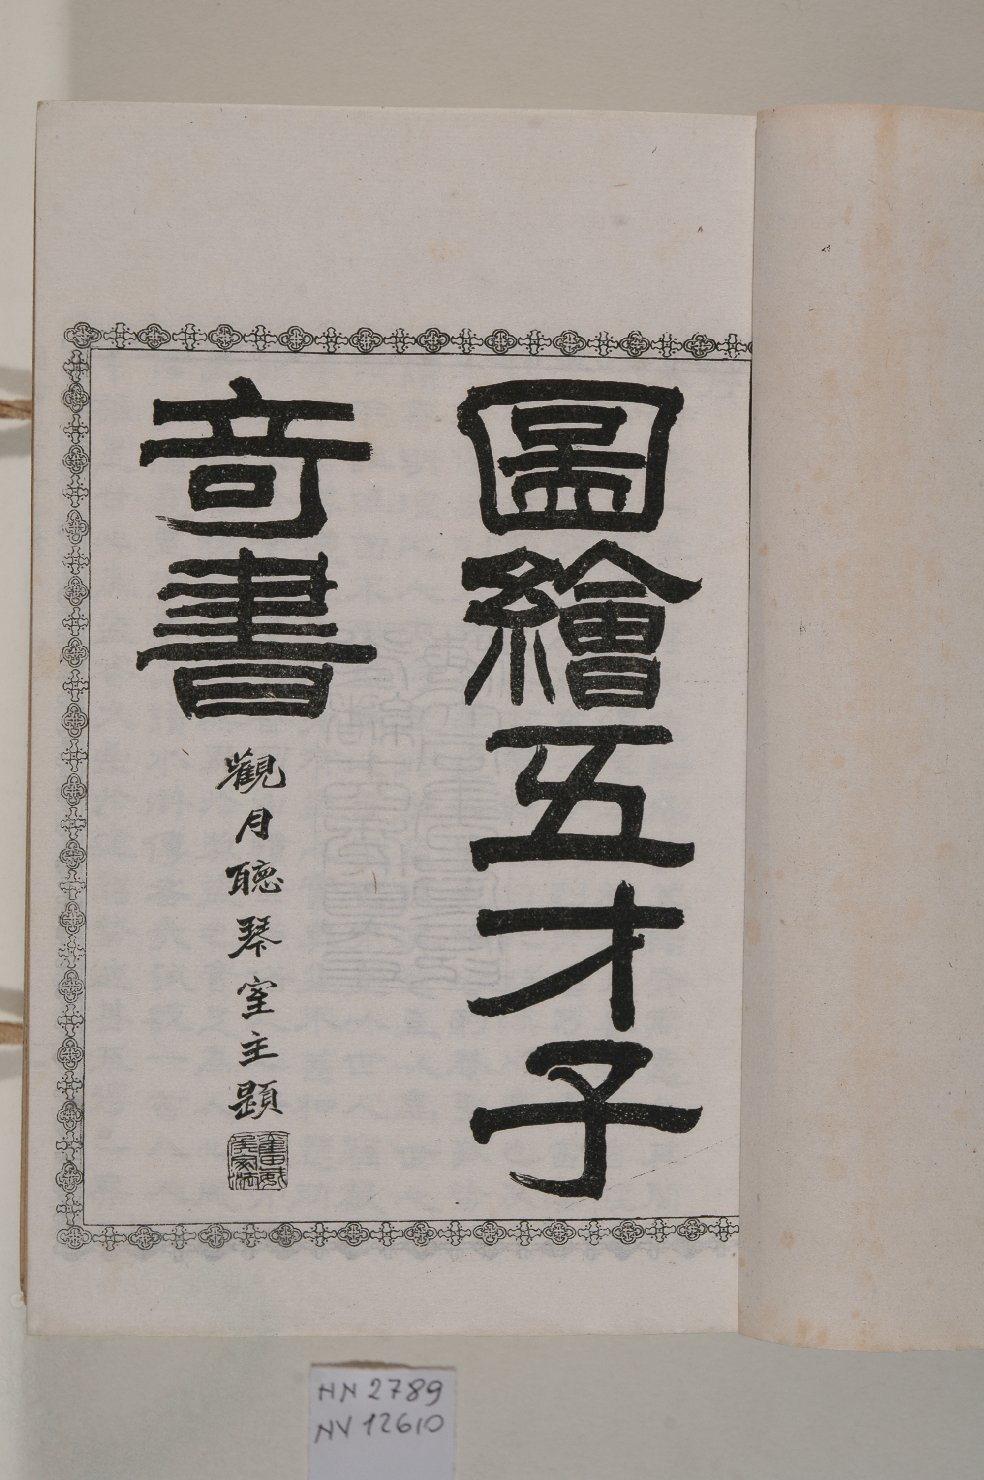 圖繪五才子
奇書
觀月聽琴室主題
HN 2789
NV 12610